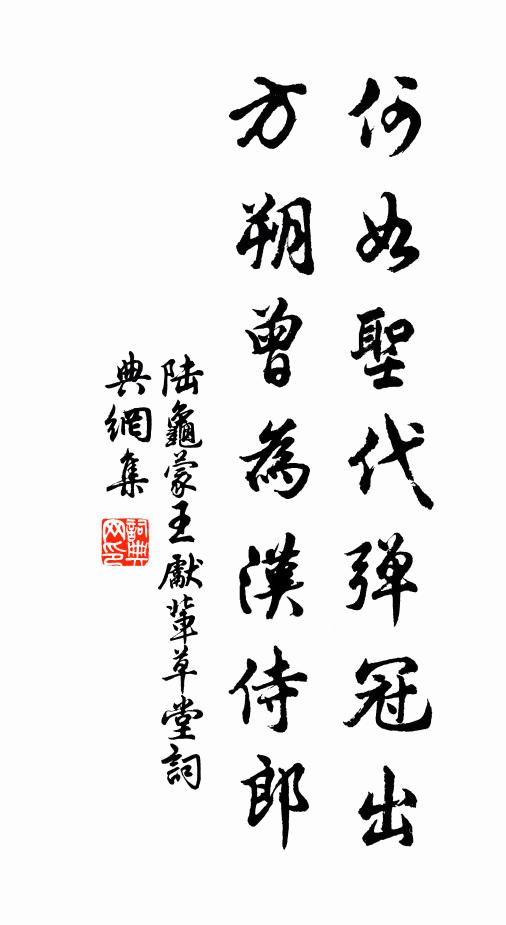 何如聖代弹冠出
方朔曾為漢侍郎
陆龜蒙王獻輩草堂詞
典網集
詞典網印